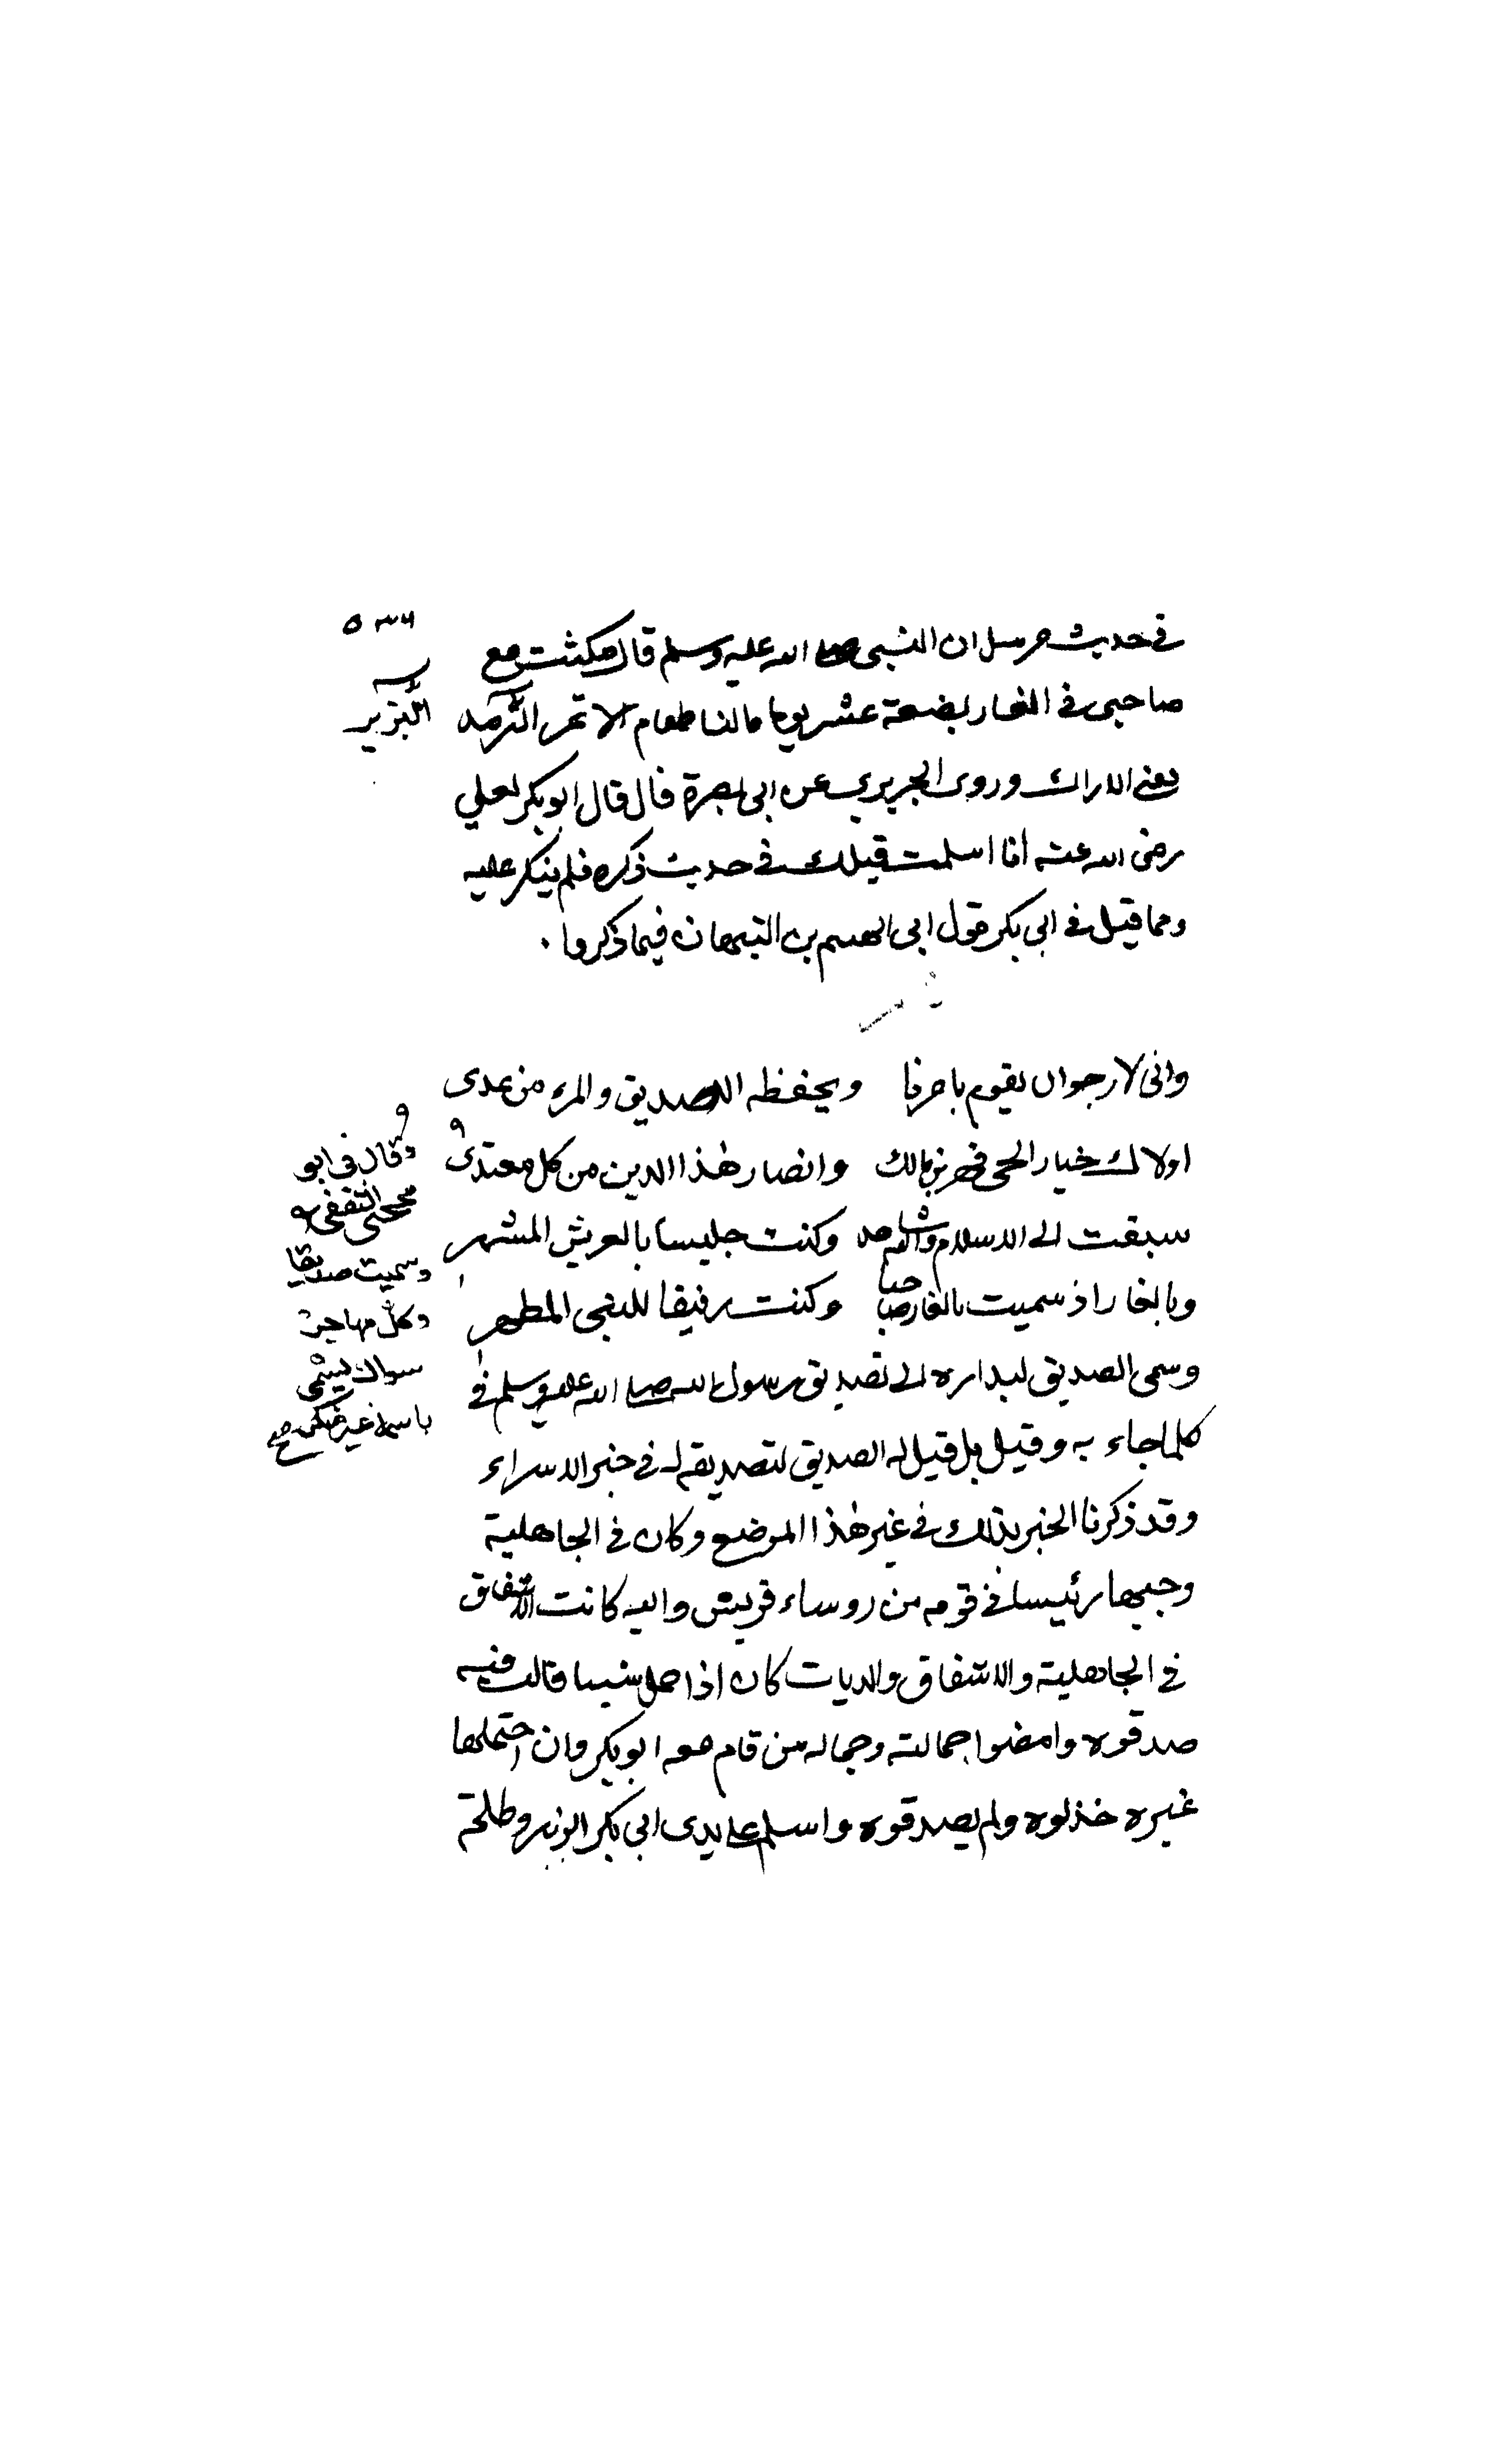 ٥٣٦
في حديث مرسل ان النبي صلى الله عليه وسلم قال مكثت مع
صاحبى في الغار بضعة عشر يوما مالنا طعام الا تمر البرير
البرير
يعني الاراك وروى الجريري عن ابى بصرة قال قال ابو بكر لعلي
رضى الله عنه أنا اسلمت قبلك في حديث ذكره فلم ينكر عليه
ومما قيل في ابي بكر قول ابى الهيسم بن التيهان فيما ذكروا .
وانى لارجوان يقوم بامرنا ويحفظه الصديق والمرء من عدى
اولاك خيار الحى فهر بن مالك وانصار هذا الدين من كل معتدى
وقال فى ابو
محجن الثقفى
وسميت صديقا
وكل مهاجر
سواك يسمى
باسمه غير منكر صح
سبقت الى الاسلام والله شاهد وكنت جليسا بالعريش المشهر
وبالغار اذ سميت بالغار صاحبا وكنت رفيقا للنبى المطهر
وسمى الصديق لبداره الى تصديق رسول الله صلى الله عليه وسلم في
كلما جاء به وقيل بل قيل له الصديق لتصديقه له في خبر الاسراء
وقد ذكرنا الخبر بذلك في غير هذا الموضع وكان في الجاهلية
وجيها رئيسا في قومه من روساء قريش واليه كانت الاشناق
في الجاهلية والاشناق الديات كان اذا حمل شيسا قالت فيه
صدقوه وامضوا حمالته وحمالة من قام معه ابو بكر وان احتملها
غيره خذلوه ولم يصدقوه واسلم على يدى ابي بكر الزبير وطلحة